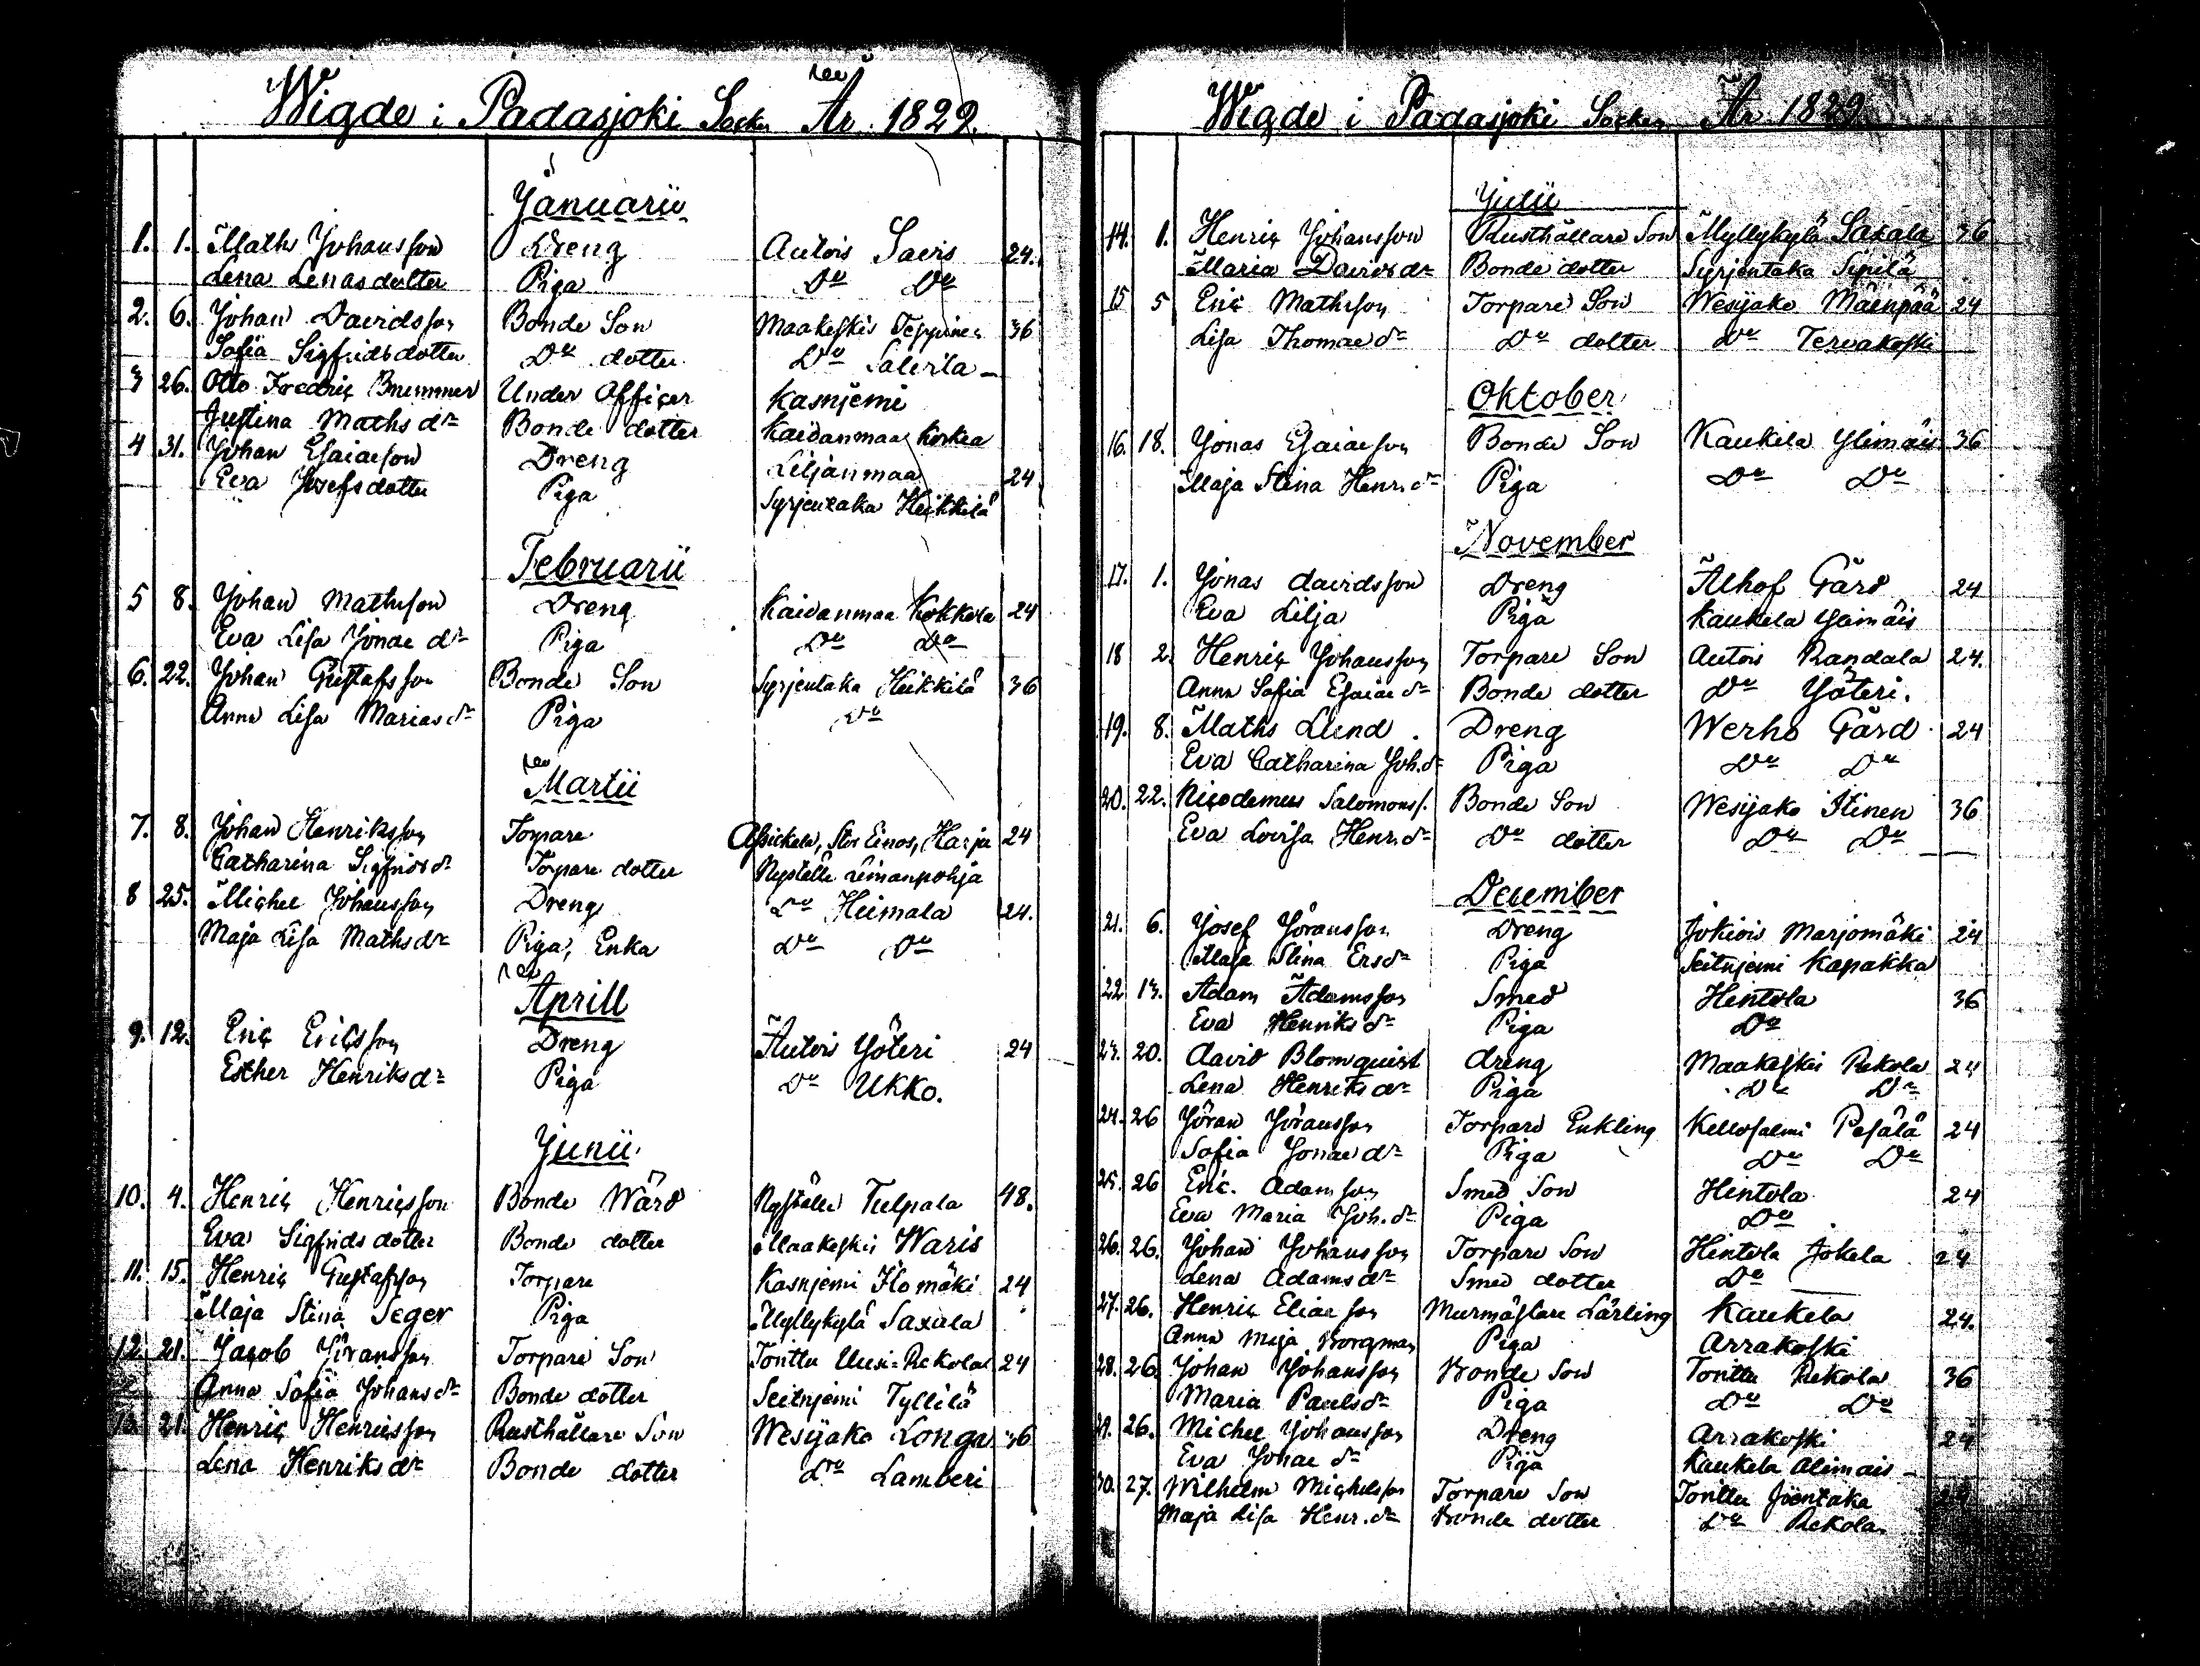 Wigde i Padasjoki Socken År 1829.
Januarii
1. 1. Maths Johansson Dreng Autois Saeris 24.
Lena Lenasdotter Piga Do Do
2. 6. Johan Davidsson Bonde Son Maakeskis Teppinen 36
Sofia Sigfridsdotter Do dotter Do Salerila
3 26. Otto Fredric Brummer Under Officer Kasnjemi
Justina Maths dr Bonde dotter Kaidanmaa Korkea
4 31. Johan Esaiasson Dreng Liljanmaa 24
Eva Josefsdotter Piga Syrjentaka Heikkilä
Februarii
5 8. Johan Mathsson Dreng Kaidanmaa Kokkola 24
Eva Lisa Jonae dr Piga Do Do
6. 22. Johan Gustafsson Bonde Son Syrjentaka Heikkilä 36
Anna Lisa Marias dr Piga Do
Martii
7. 8. Johan Henriksson Torpare Assickala, Stor Einos, Harju 24
Catharina Sigfrids dr Torpare dotter Nystälä Leimanpohja
8 25. Michel Johansson Dreng Do Heimala 24.
Maja Lisa Maths dr Piga, Enka Do Do
Aprill
9. 12. Eric Ericsson Dreng Autois Yöteri 24
Esther Henriks dr Piga Do Ukko.
Junii
10. 4. Henric Henricsson Bonde Wärd Nystälä Tulpala 48.
Eva Sigfrids dotter Bonde dotter Maakeskis Waris
11. 15. Henric Gustafsson Torpare Kasnjemi Ilomäki 24
Maja Stina Seger Piga Myllykylä Saxala
12. 21. Jacob Jöransson Torpare Son Tonttu Uusi-Rekola 24
Anna Sofia Johans dr Bonde dotter Seitnjemi Tyllilä
13. 21. Henric Henricsson Rusthållare Son Wesijako Longa 36
Lena Henriks dr Bonde dotter Do Lamberi
Wigde i Padasjoki Socken År 1829.
Julii
14. 1. Henric Johansson Rusthållare Son Myllykylä Saxala 36
Maria Davids dr Bonde dotter Syrjentaka Sipilä
15 5 Eric Mathsson Torpare Son Wesijako Mäenpää 24
Lisa Thomae dr Do dotter Do Tervakoski
Oktober
16. 18. Jonas Esaiaeson Bonde Son Kaukela Ylimäis 36
Maja Stina Henr. dr Piga Do Do
November
17. 1. Jonas davidsson Dreng Alhof Gård 24
Eva Lilja Piga Kaukela Ylimäis
18 2. Henric Johansson Torpare Son Autois Randala 24.
Anna Sofia Esaiae dr Bonde dotter Do Yöteri.
19. 8. Maths Lund. Dreng Werho Gård 24
Eva Catharina Joh. dr Piga Do Do
20. 22. Nicodemus Salomonss. Bonde Son Wesijako Iltinen 36
Eva Lovisa Henr. dr Do dotter Do Do
December
21. 6. Josef Jöransson Dreng Jokiois Marjomäki 24
Maja Stina Ers dr Piga Seitnjemi Kapakka
22 13. Adam Adamsson Smed Hintola 36
Eva Henriks dr Piga Do
23. 20. david Blomquist dreng Maakeskis Rekola 24
Lena Henriks dr Piga Do Do
24. 26 Jöran Jöransson Torpare Enkling Kellosalmi Pesälä 24
Sofia Jonae dr Piga Do Do
25. 26 Eric. Adamsson Smed Son Hintola 24
Eva Maria Joh. dr Piga Do
26. 26. Johan Johansson Torpare Son Hintola Jokela 24
Lena Adams dr Smed dotter Do
27. 26. Henric Eliaeson Murmästare Lärling Kaukela 24.
Anna Maja Borgman Piga Arrakoski
28. 26. Johan Johansson Bonde Son Tonttu Rekola 36
Maria Pauls dr Piga Do Do
29. 26. Michel Johansson Dreng Arrakoski 24
Eva Johae dr Piga Kaukela Alimäis
30. 27. Wilhelm Michelsson Torpare Son Tonttu Joentaka 24
Maja Lisa Henr. dr Bonde dotter Do Rekola.